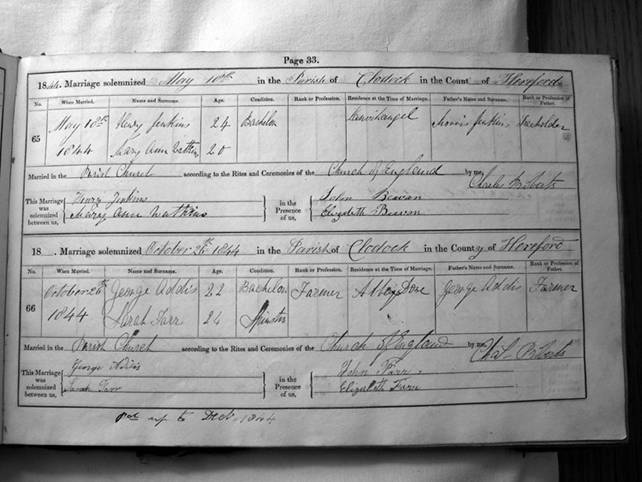 Page 33.
1844. Marriage solemnized May 10th in the Parish of Clodock in the County of Hereford
No. When Married. Name and Surname. Age. Condition. Rank or Profession. Residence at the Time of Marriage. Father's Name and Surname. Rank or Profession of Father.
65 May 10th Henry Jenkins 24 Bachelor Jenkins
1844 Mary Ann Watkins 20
Married in the Parish Church according to the Rites and Ceremonies of the Church of England by me, Charles Roberts
This Marriage was solemnized between us, Henry Jenkins in the Presence of us, John Bevan
Mary Ann Watkins Elizabeth Bevan
18 . Marriage solemnized October 26th 1844 in the Parish of Clodock in the County of Hereford
No. When Married. Name and Surname. Age. Condition. Rank or Profession. Residence at the Time of Marriage. Father's Name and Surname. Rank or Profession of Father.
66 October 26th George Addis 22 Bachelor Farmer Abbey Dore George Addis Farmer
1844 Sarah Farr 24
Married in the Parish Church according to the Rites and Ceremonies of the Church of England by me, Chas Roberts
This Marriage was solemnized between us, George Addis in the Presence of us, John Farr
Sarah Farr Elizabeth Farr
up to 1844